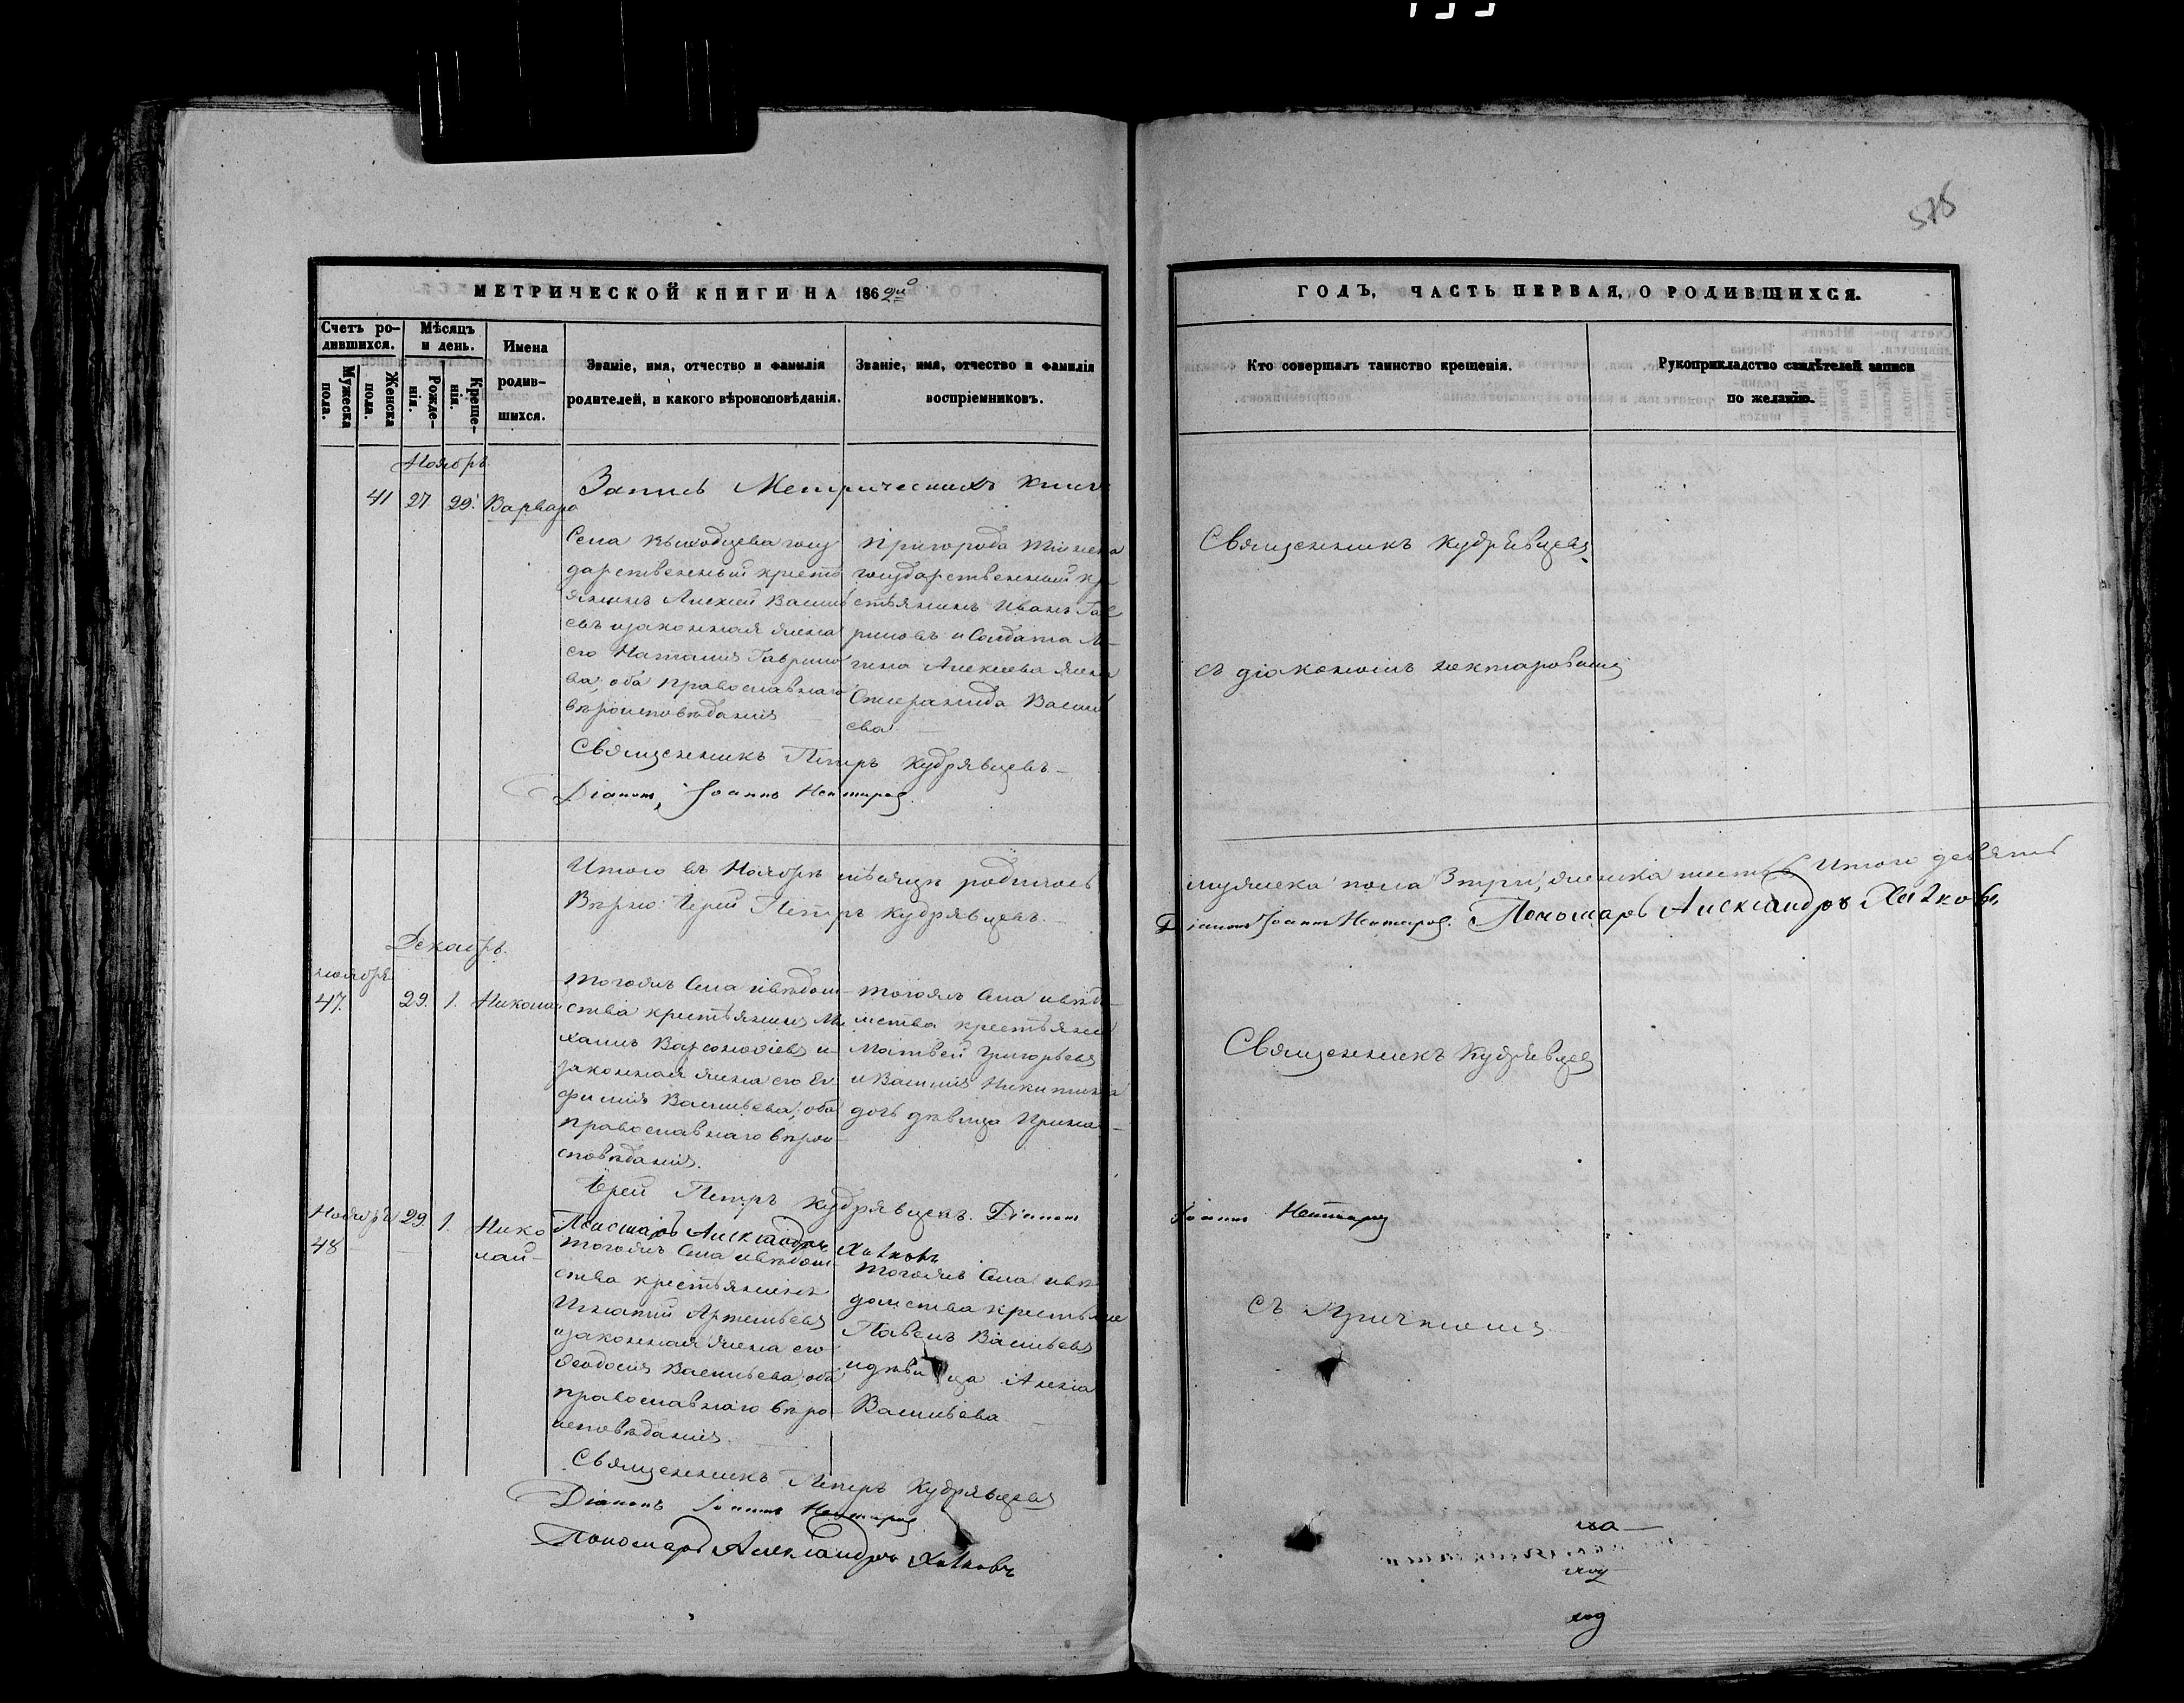 578
МЕТРИЧЕСКОЙ КНИГИ НА 1862й
ГОДЪ, ЧАСТЬ ПЕРВАЯ, О РОДИВШИХСЯ.
Счетъ ро-
дившихся.
Мужеска
пола.
Женска
пола.
Мѣсяцъ
и день.
Рожде-
нія.
Креще-
нія.
Имена
родив-
шихся.
Званіе, имя, отчество и фамилія
родителей, и какого вѣроисповѣданія.
Званіе, имя, отчество и фамилія
воспріемниковъ.
Кто совершалъ таинство крещенія.
Рукоприкладство свидѣтелей записи
по желанію.
Ноябрь
Запись Метрическихъ книгъ
41 27 29 Варвара
Села Выходцева госу
дарственный кресть
янинъ Алексѣй Василь
евъ и законная жена
его Наталия Гаврило
ва, оба православнаго
вѣроисповѣданія
Пригорода
государственный кр
стьянинъ Иванъ Гав
риловъ и Солдата
Алексѣева жена
Василь
ева
Священникъ Кудрявцевъ
съ діакономъ Нектаровымъ
Священникъ Петръ Кудрявцевъ
Діаконъ Іоаннъ Нектаровъ
Итого въ Ноябрѣ мѣсяцѣ родилось
мужеска пола 3 три, женска шесть 6 Итого девять
Вѣрно: Іерей Петръ Кудрявцевъ.
Діаконъ Іоаннъ Нектаровъ. Пономарь Александръ Хатковъ
Декабрь.
ноября
47. 29. 1. Николай
тогожъ Села и вѣдом
ства крестьянинъ Ми
хаилъ Варсонофіевъ и
законная жена его Ев
фимія Васильева, оба
православнаго вѣрои
сповѣданія.
тогожъ Села и вѣдо
мства крестьянинъ
Матвей Григорьевъ
и Василія Никитина
дочь дѣвица Ирина
Священникъ Кудрявцевъ
Іерей Петръ Кудрявцевъ. Діаконъ
Іоаннъ Нектаровъ
Пономарь Александръ Хатковъ
Ноября 29 1. Нико
48 лай
тогожъ Села и вѣдом
ства крестьянинъ
Игнатій Артемьевъ
и законная жена его
Ѳеодосія Васильева, оба
православнаго вѣро
исповѣданія.
тогожъ Села и вѣ
домства крестьяне
Павелъ Васильевъ
и дѣвица Анна
Васильева
съ Причтомъ
Священникъ Петръ Кудрявцевъ
Діаконъ Іоаннъ Нектаровъ
Пономарь Александръ Хатковъ